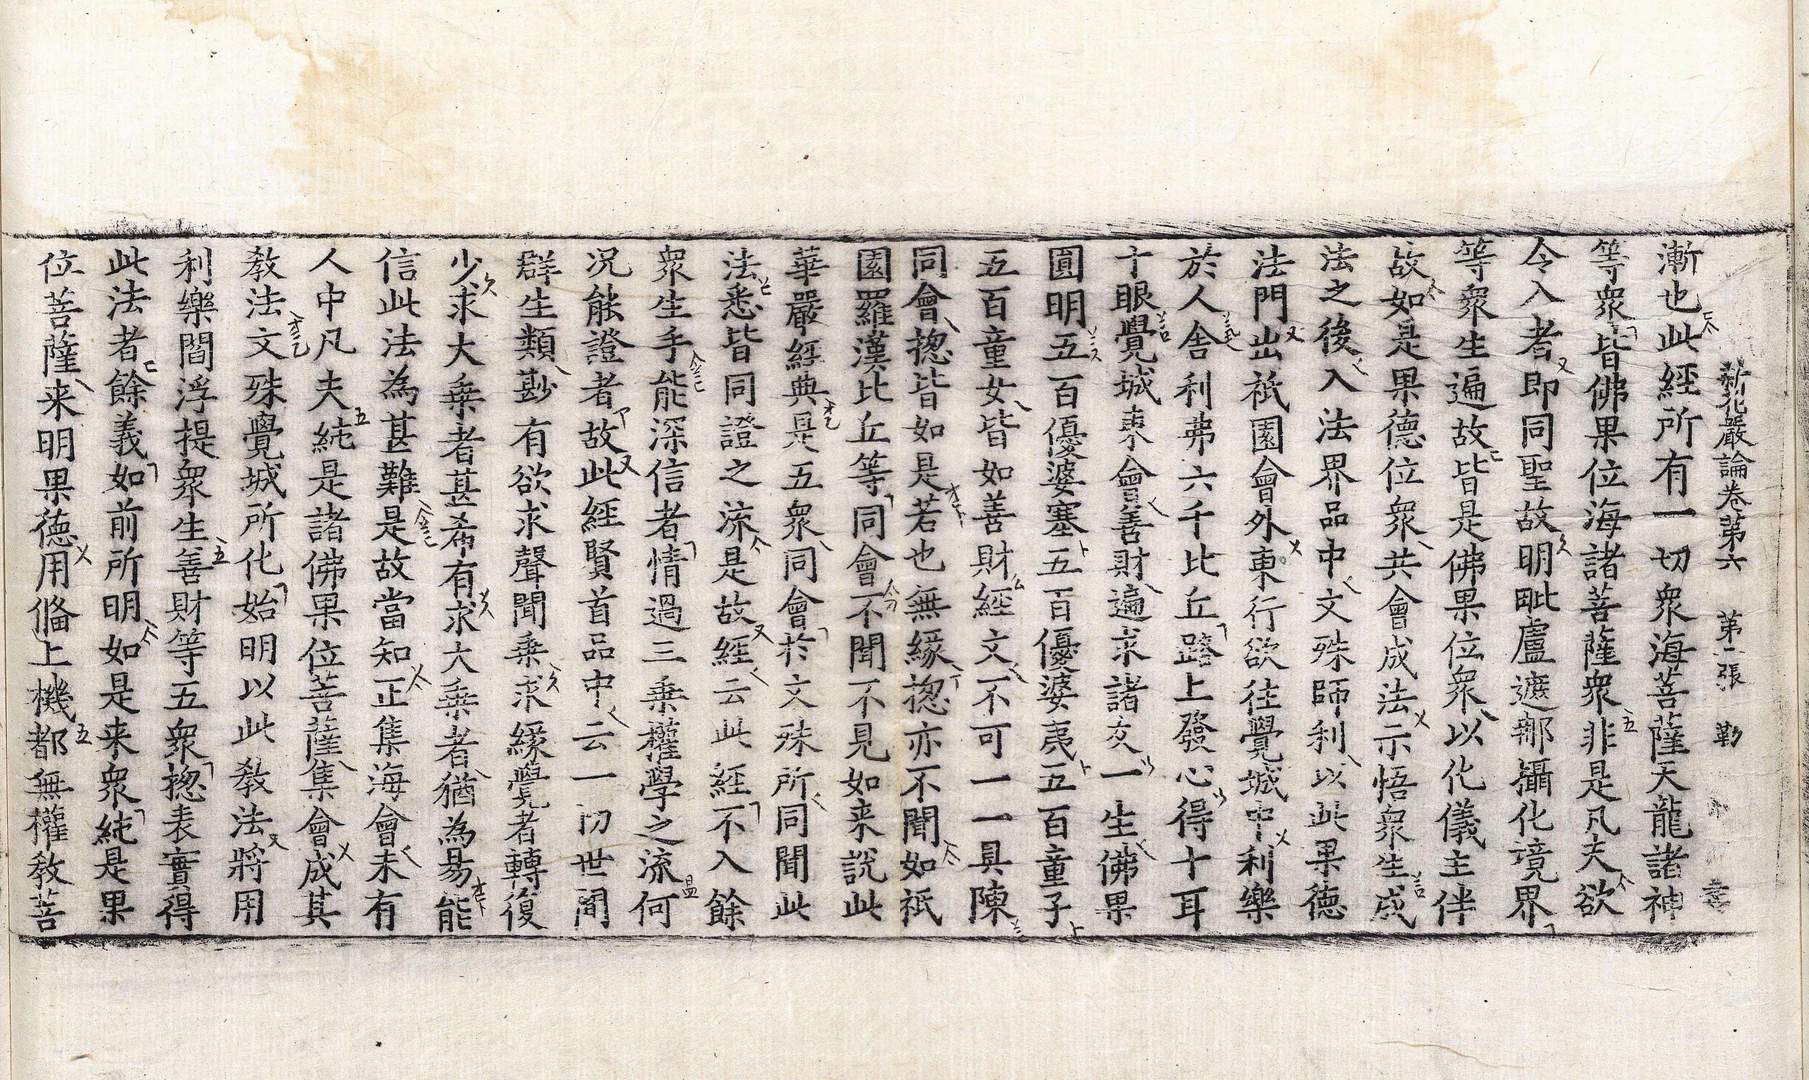 新花嚴論卷第六 第二張 勒
漸也此經所有一切衆海菩薩天龍諸神
等衆皆佛果位海諸菩薩衆非是凡夫欲
令入者即同聖故明毗盧遮那攝化境界
等衆生遍故皆是佛果位衆以化儀主伴
故如是果德位衆共會成法示悟衆生成
法之後入法界品中文殊師利以此果德
法門出祇園會外東行欲往覺城中利樂
於人舎利弗六千比丘路上發心得十耳
十眼覺城東會善財遍求諸友一生佛果
圓明五百優婆塞五百優婆夷五百童子
五百童女皆如善財經文不可一一具陳
同會揔皆如是若也無緣揔亦不聞如祇
園羅漢比丘等同會不聞不見如来說此
華嚴經典是五衆同會於文殊所同聞此
法悉皆同證之流是故經云此經不入餘
衆生手能深信者情過三乗權學之流何
况能證者故此經賢首品中云一切世閒
群生類尠有欲求聲聞乗求緣覺者轉復
少求大乗者甚希有求大乗者猶為易能
信此法為甚難是故當知正集海會未有
人中凡夫純是諸佛果位菩薩集會成其
敎法文殊覺城所化始明以此敎法將用
利樂閻浮提衆生善財等五衆揔表實得
此法者餘義如前所明如是来衆純是果
位菩薩来明果德用俻上機都無權敎菩